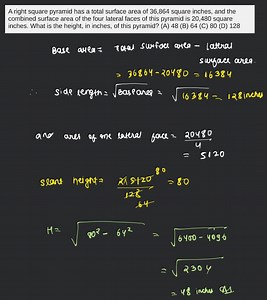 A right square pyramid has a total surface area of 36,864 square inches, and the
combined surface area of the four lateral faces of this pyramid is 20,480 square
inches. What is the height, in inches, of this pyramid? (A) 48 (B) 64 (C) 80 (D) 128
Base area = Total surface area - Lateral
surface area.
= 36864 - 20480 = 16384
∴ side length = √Base area = √16384 = 128 inches
and area of one lateral face = 20480/4
= 5120
slant height = 2×5120/128 = 80
80
64
H = √80² - 64² = √6400 - 4096
= √2304
= 48 inches